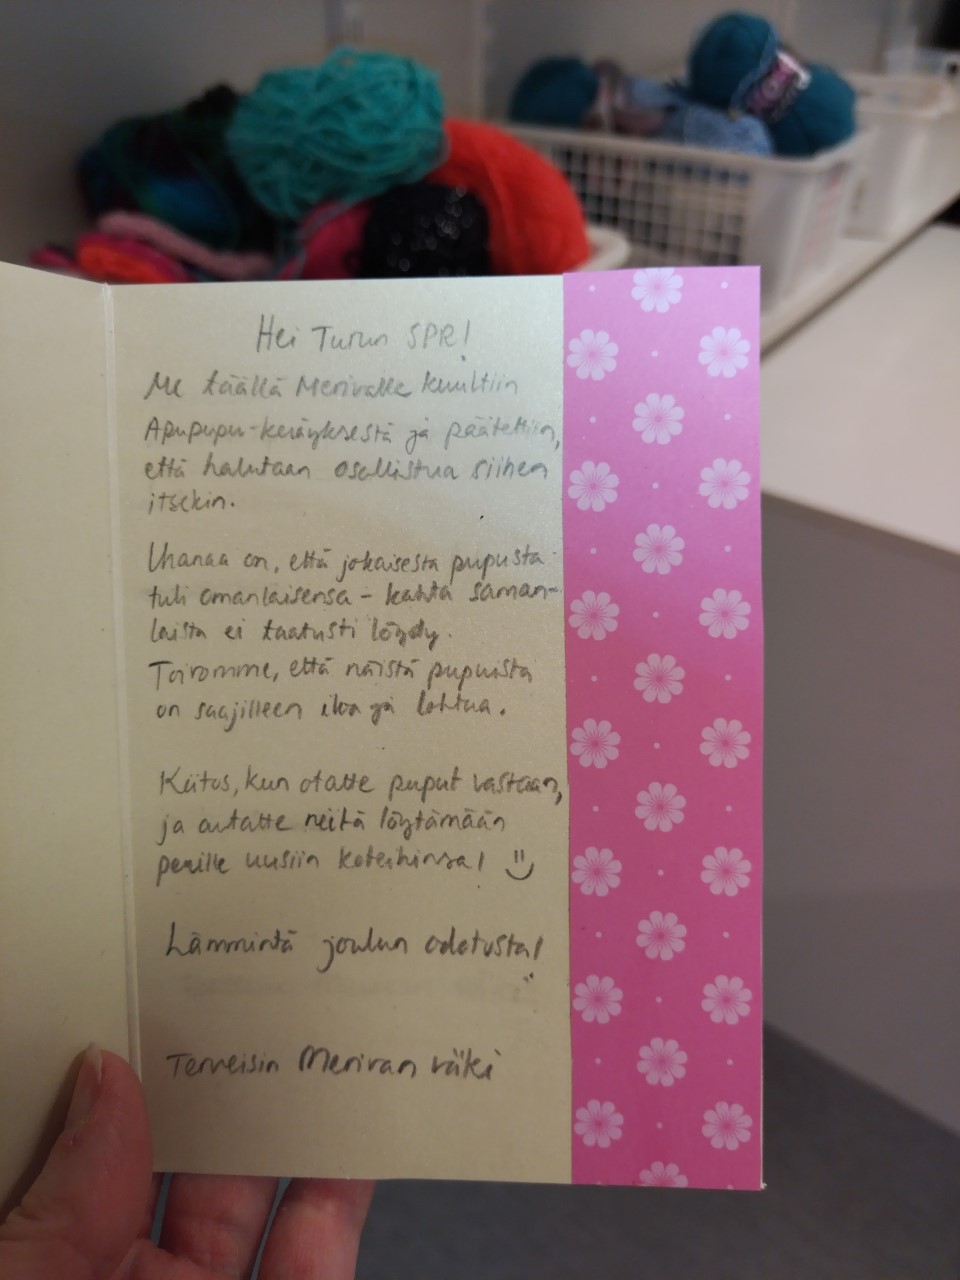 Hei Turun SPR!
Me täällä Merivalle kuultiin
Apupupu-keräyksestä ja päätettiin,
että halutaan osallistua siihen
itsekin.
Ihanaa on, että jokaisesta pupusta
tuli omanlaisensa - kahta saman-
laista ei taatusti löydy.
Toivomme, että näistä pupuista
on saajilleen iloa ja lohtua.
Kiitos, kun otatte puput vastaan,
ja autatte neitä löytämään
perille uusiin koteihinsa! :)
Lämmintä joulun odotusta!
Terveisin Merivan väki